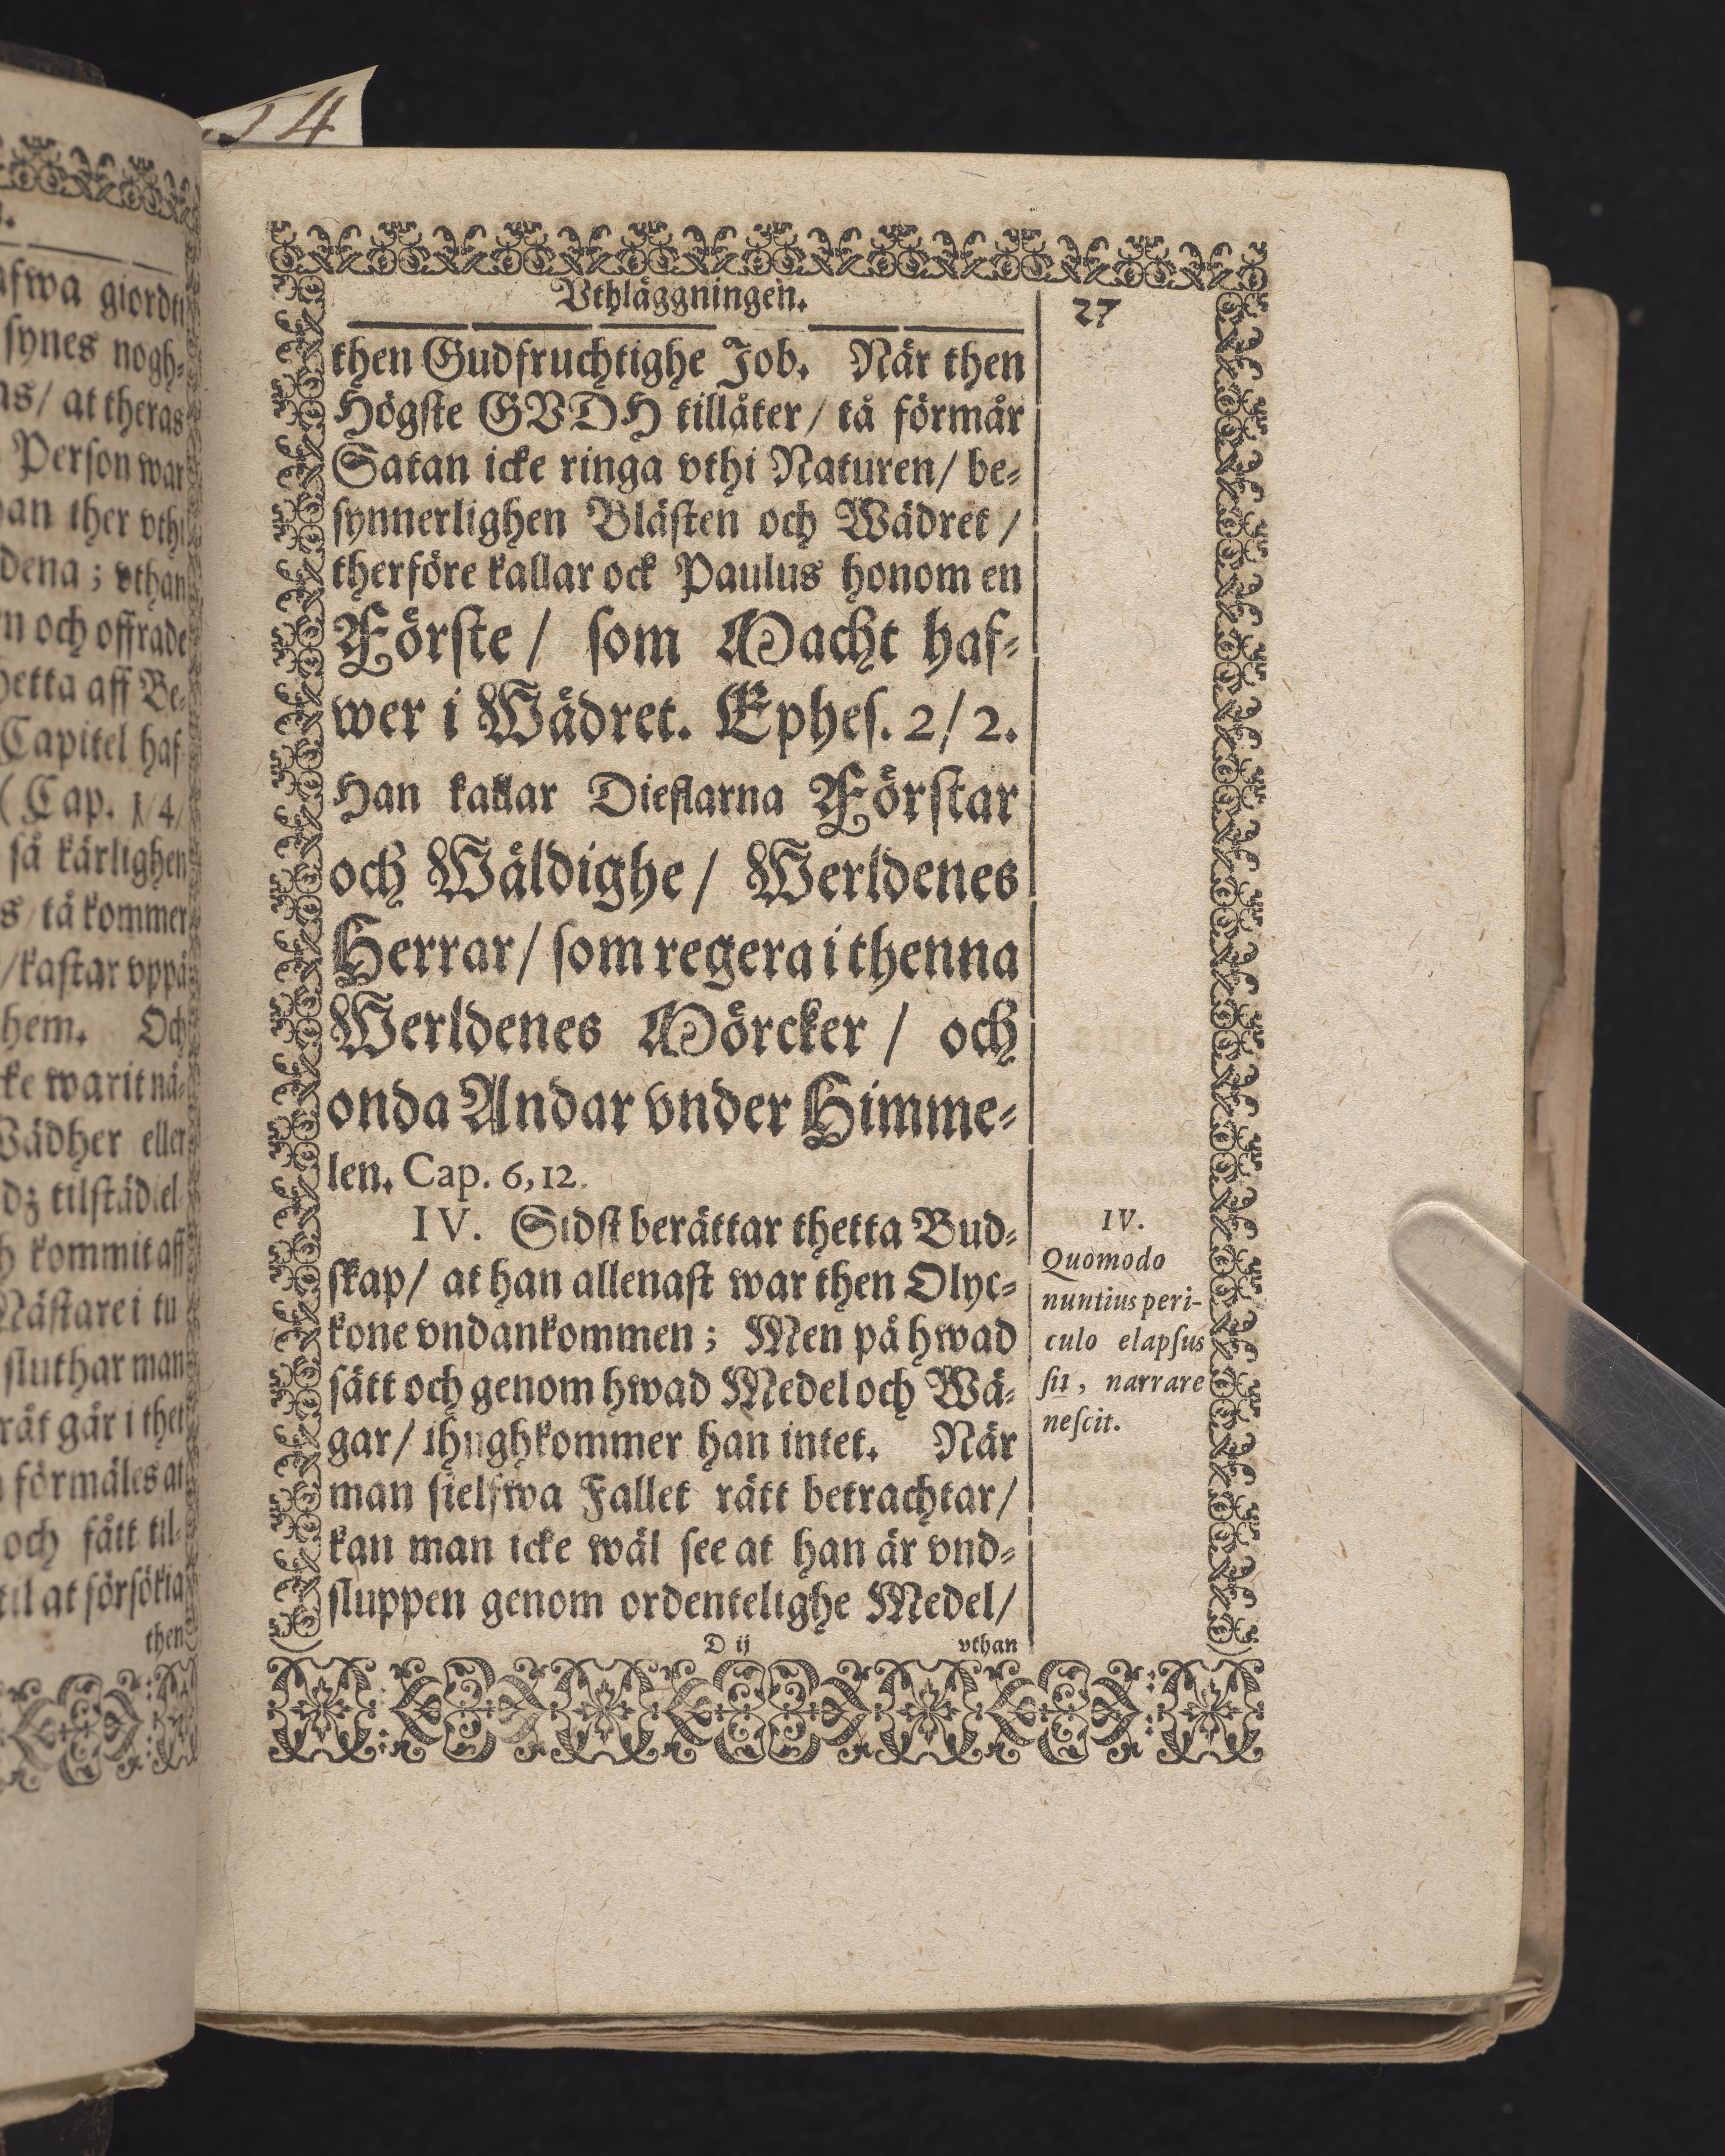 54
afwa giordt
synes nogh-
as/ at theras
Person war
an ther vthi
dena ; vthan
n och offrade
hetta aff Be-
Capitel haf-
( Cap. 1/4/
så kärlighen
s/ tå kommer
/kastar vppå
hem. Och
cke warit nå-
Wädher eller
dz tilstäd el-
kommit aff
Nästare i tu
sluthar man
går i thet
förmäles at
och fått til-
til at försökia
then
Vthläggningen.
27
then Gudfruchtighe Job. När then
Högste GVDH tillåter/ tå förmår
Satan icke ringa vthi Naturen/ be-
synnerlighen Blästen och Wädret /
therföre kallar ock Paulus honom en
Förste / som Macht haf-
wer i Wädret. Ephes. 2/ 2.
Han kallar Dieflarna Förstar
och Wäldighe / Werldenes
Herrar/ som regera i thenna
Werldenes Mörcker / och
onda Andar vnder Himme-
len. Cap. 6, 12.
IV. Sidst berättar thetta Bud-
skap/ at han allenast war then Olyc-
kone vndankommen ; Men på hwad
sätt och genom hwad Medel och Wä-
gar/ ihughkommer han intet. När
man sielfwa Fallet rätt betrachtar/
kan man icke wäl see at han är vnd-
sluppen genom ordentelighe Medel/
D ij
vthan
IV.
Quomodo
nuntius peri-
culo elapsus
sit, narrare
nescit.